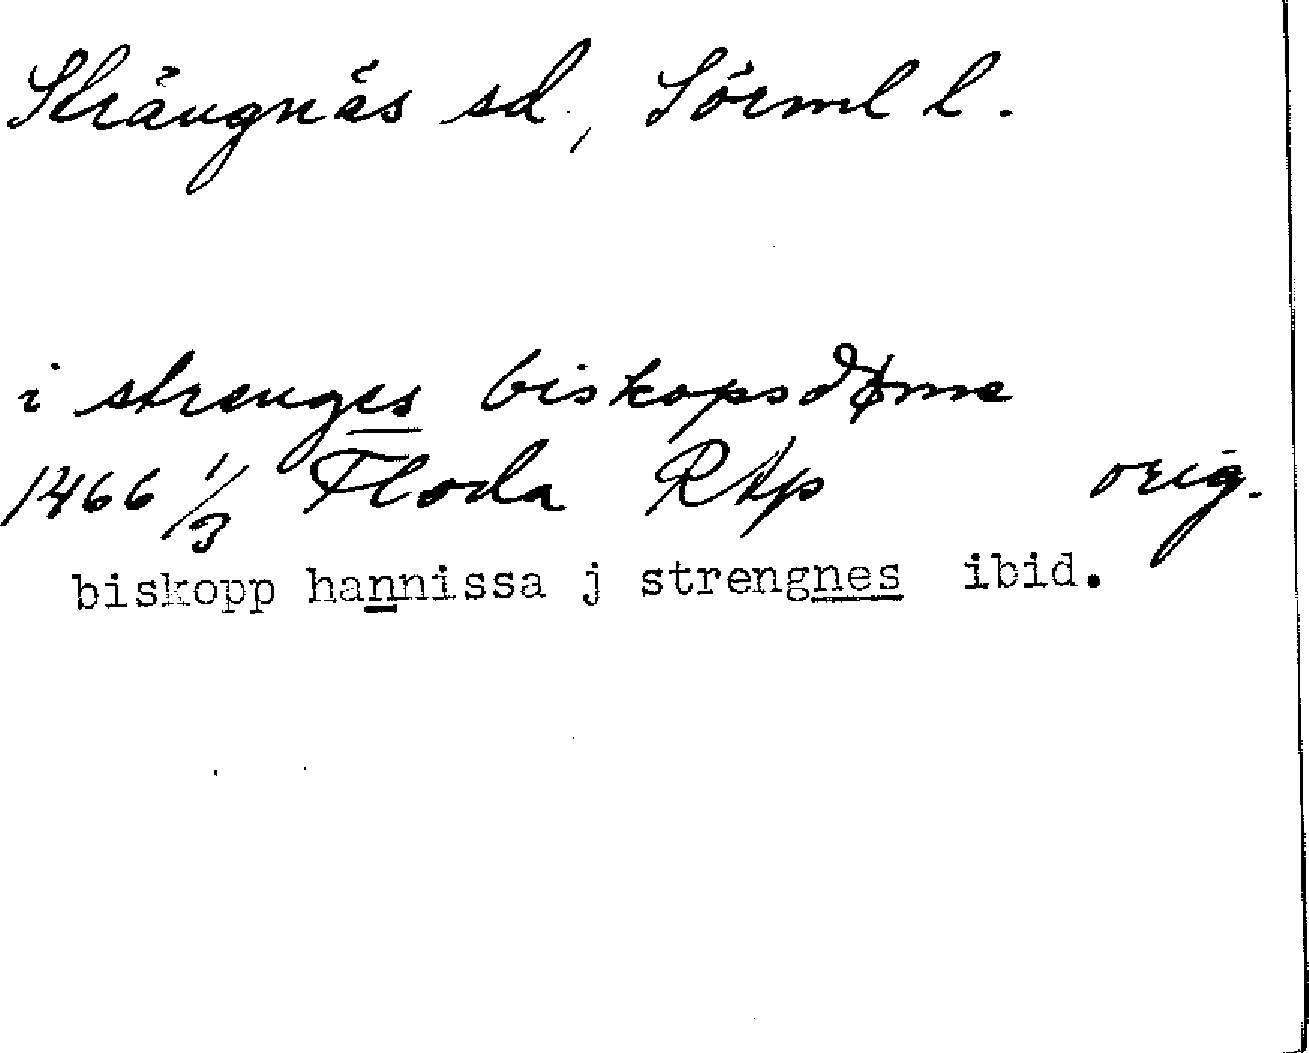 Strängnäs sd., Sörml l.
i strenges biskopsdøme
1466 1/3 Floda RAp orig.
biskopp hannissa j strengnes ibid.